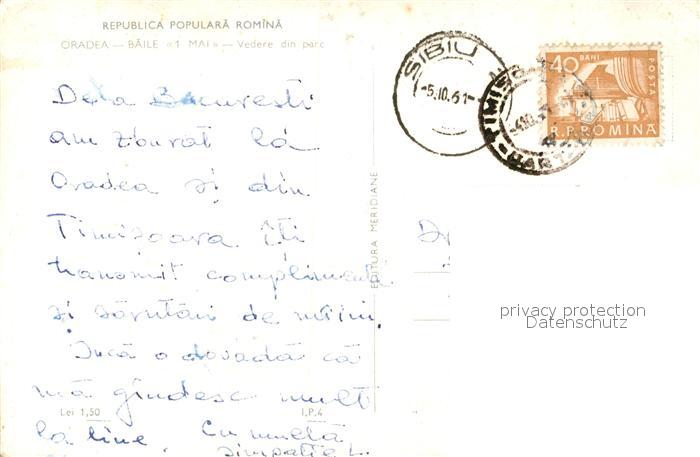 REPUBLICA POPULARĂ ROMÎNĂ
ORADEA — BĂILE «1 MAI» — Vedere din parc
De la Bucuresti
am zburat la
Oradea și din
Timișoara îți
transmit complimente
și sărutări de mîini.
Încă o dovadă că
mă gîndesc mult
la tine.
Cu multă
simpatie L.
Lei 1,50
I.P.4
EDITURA MERIDIANE
SIBIU
-5.10.61-
40 BANI
POSTA
R.P.ROMINA
privacy protection
Datenschutz